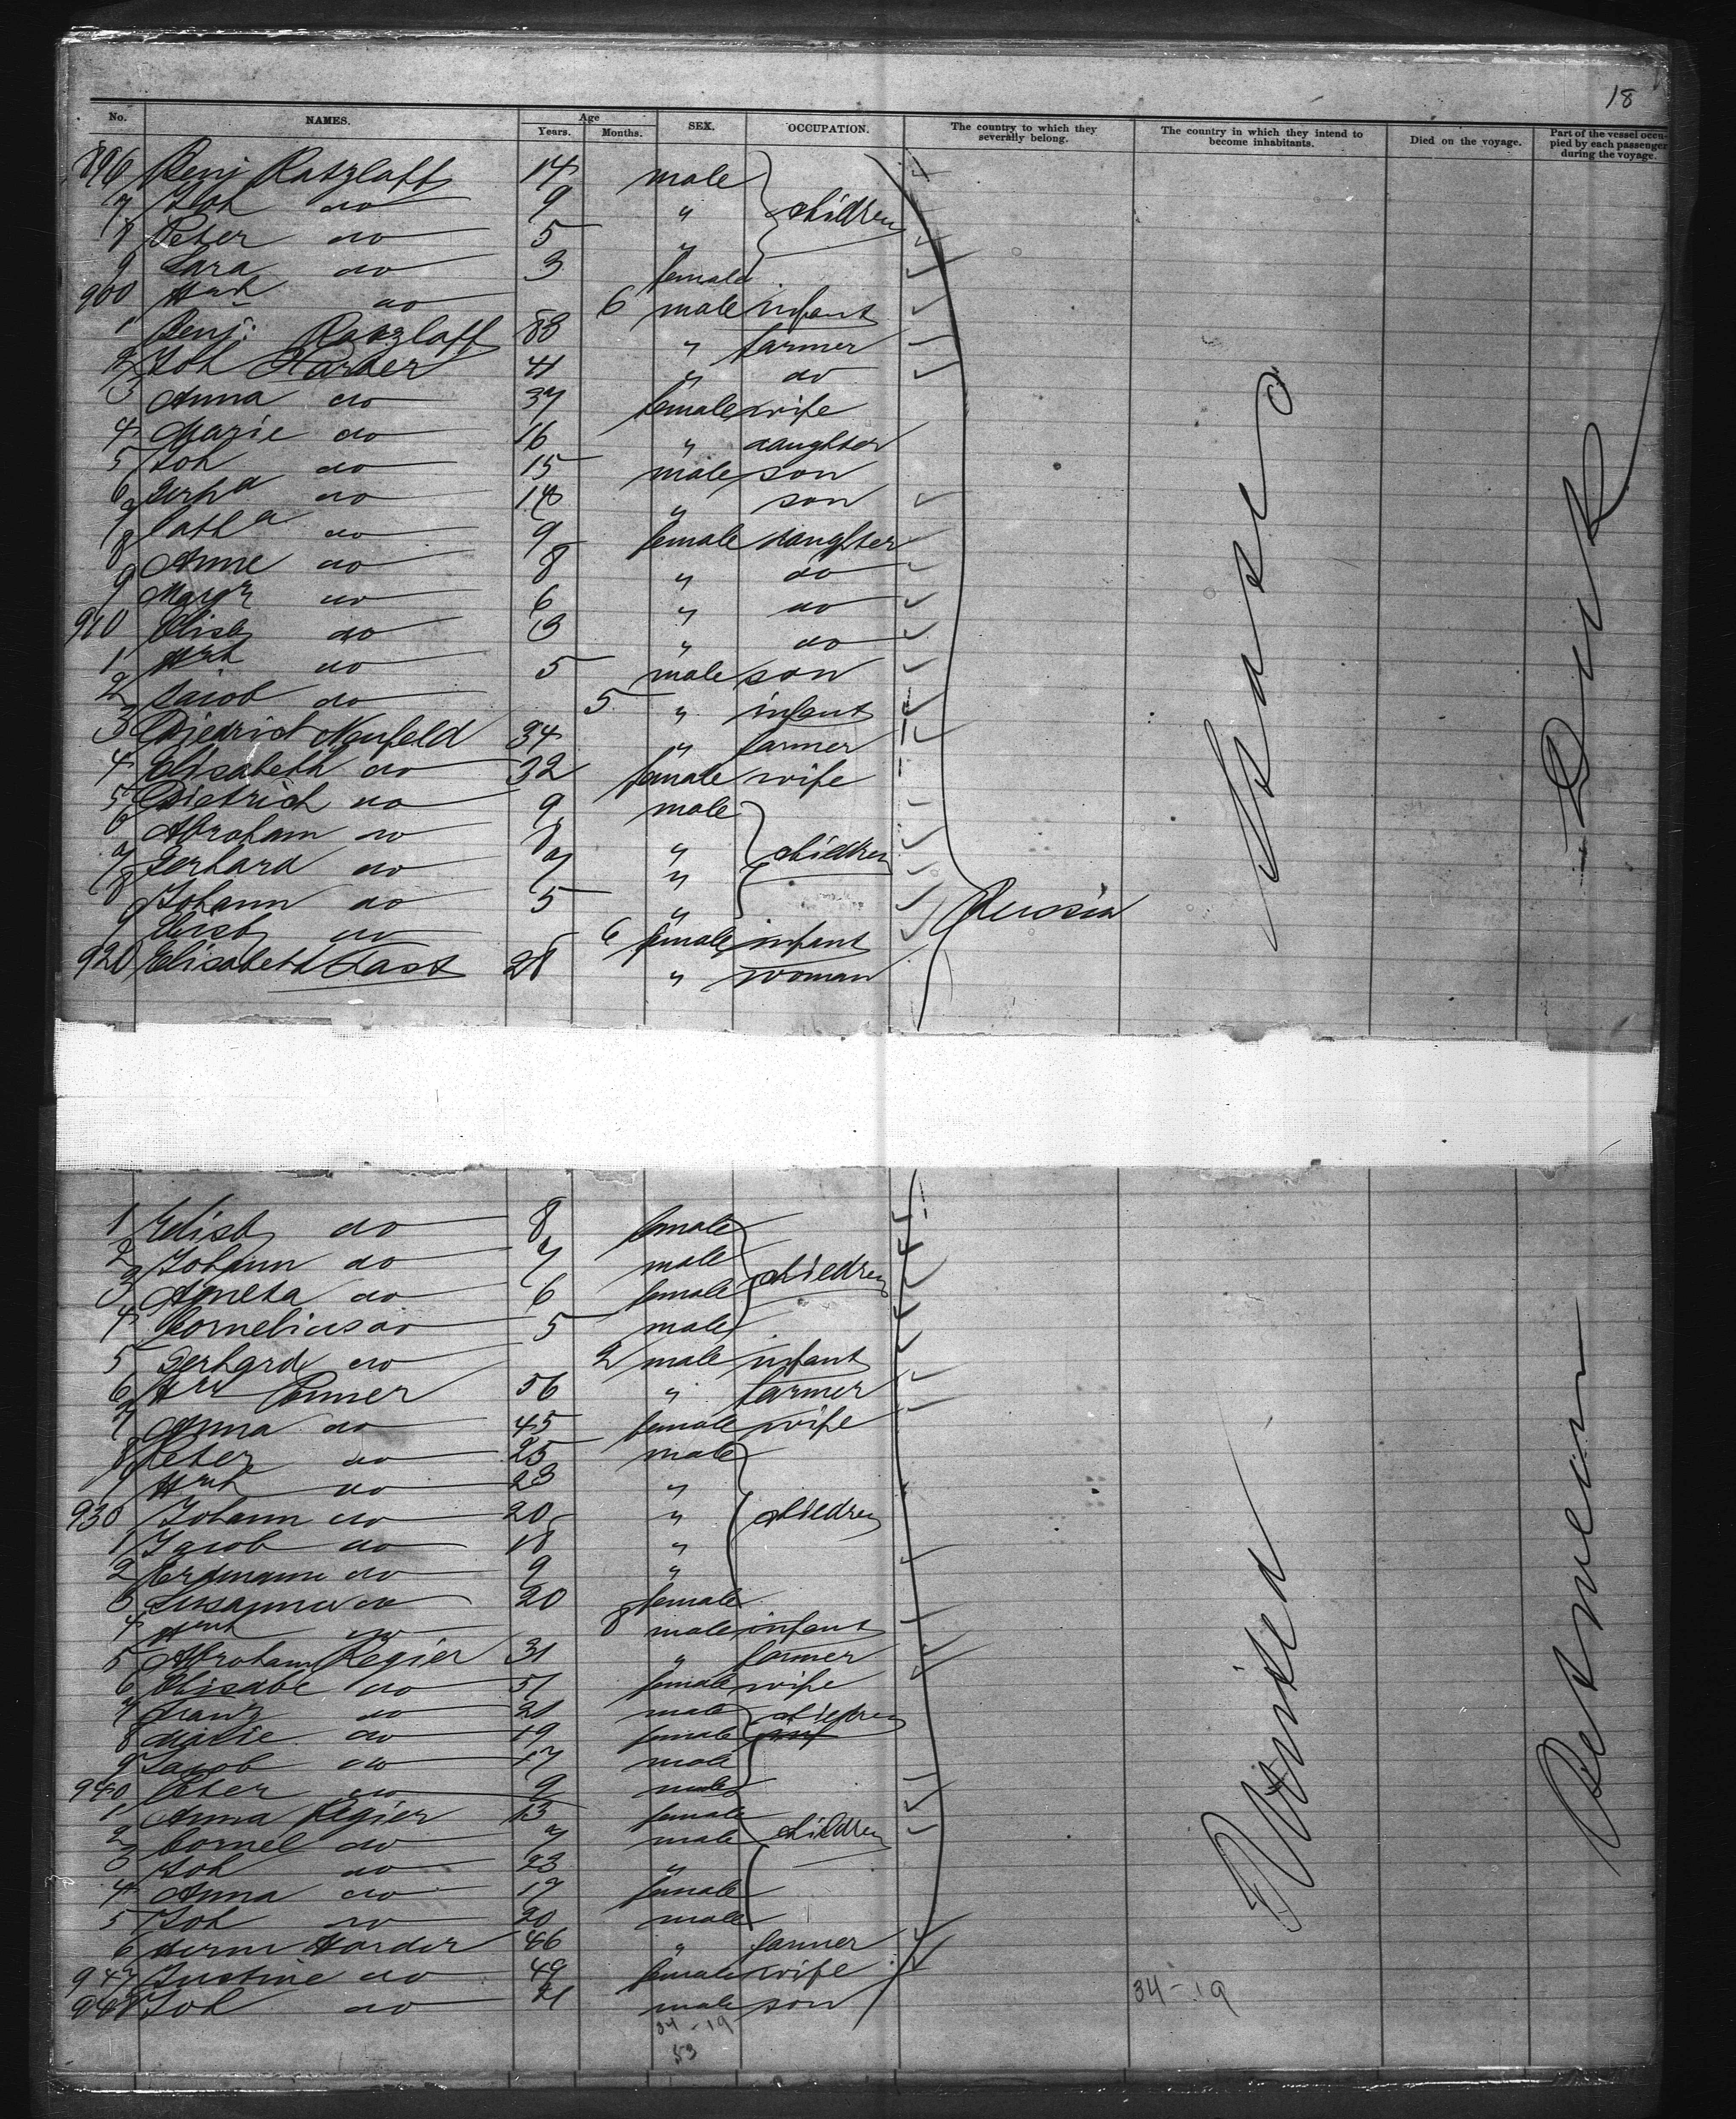 18
No. NAMES. Age Years. Months. SEX. OCCUPATION. The country to which they severally belong. The country in which they intend to become inhabitants. Died on the voyage. Part of the vessel occupied by each passenger during the voyage.
896 Benj Ratzlaff 14 male children
7 Joh do 9 "
8 Peter do 5 "
9 Sara do 3 female
900 Hrch do 6 male infant
1 Benj: Ratzlaff 88 " farmer
2 Joh Harder 41 " do
3 Anna do 37 female wife
4 Marie do 16 " daughter
5 Joh do 15 male son
6 do " son
7 Catha do 9 female daughter
8 Anne do 8 " do
9 Margr do 6 " do
910 Elisb do 3 " do
1 Hrch do 5 male son
2 Jacob do 5 " infant
3 Diedrich Neufeld 34 " farmer
4 Elisabeth do 32 female wife
5 Dietrich do 9 male children
6 Abraham do 8 "
7 Gerhard do 7 "
8 Johann do 5 "
9 Elisb do 6 female infant
920 Elisabeth Fast 28 " woman
Russia
States
Deck
1 Elisb do 8 female children
2 Johann do 7 male
3 Agneta do 6 female
4 Cornelius do 5 male
5 Gerhard do 2 male infant
6 Penner 56 " farmer
7 Anna do 45 female wife
8 Peter do 25 male children
9 Hrch do 23 "
930 Johann do 20 "
1 Jacob do 18 "
2 Erdmann do 9 "
3 Susanna do 20 female
4 Hrch do 8 male infant
5 Abraham Regier 31 " farmer
6 Elisabe do 51 female wife
7 Franz do 21 male children
8 Marie do 19 female
9 Jacob do 17 male
940 Peter do 9 male
1 Anna Regier 13 female children
2 Cornel do 7 male
3 Joh do 23 "
4 Anna do 17 female
5 Joh do 20 male
6 Herm Harder 46 " farmer
947 Justine do 49 female wife
948 Joh do 21 male son
United
Between
34-19
34-19
53